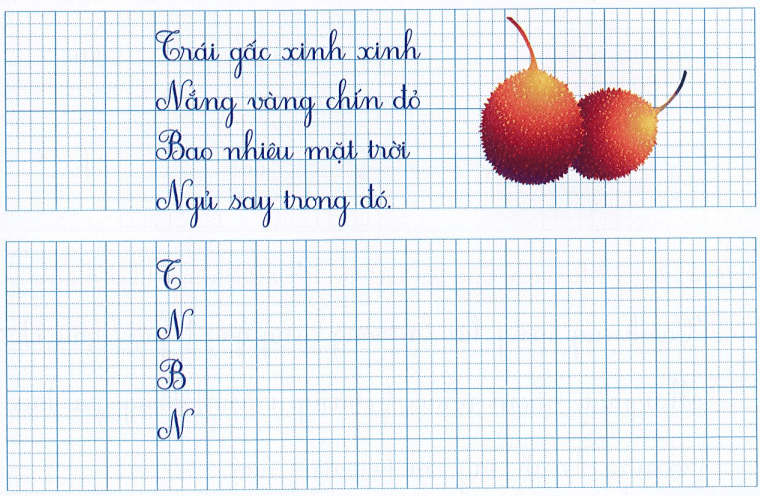 Trái gấc xinh xinh
Nắng vàng chín đỏ
Bao nhiêu mặt trời
Ngủ say trong đó.
T
N
B
N